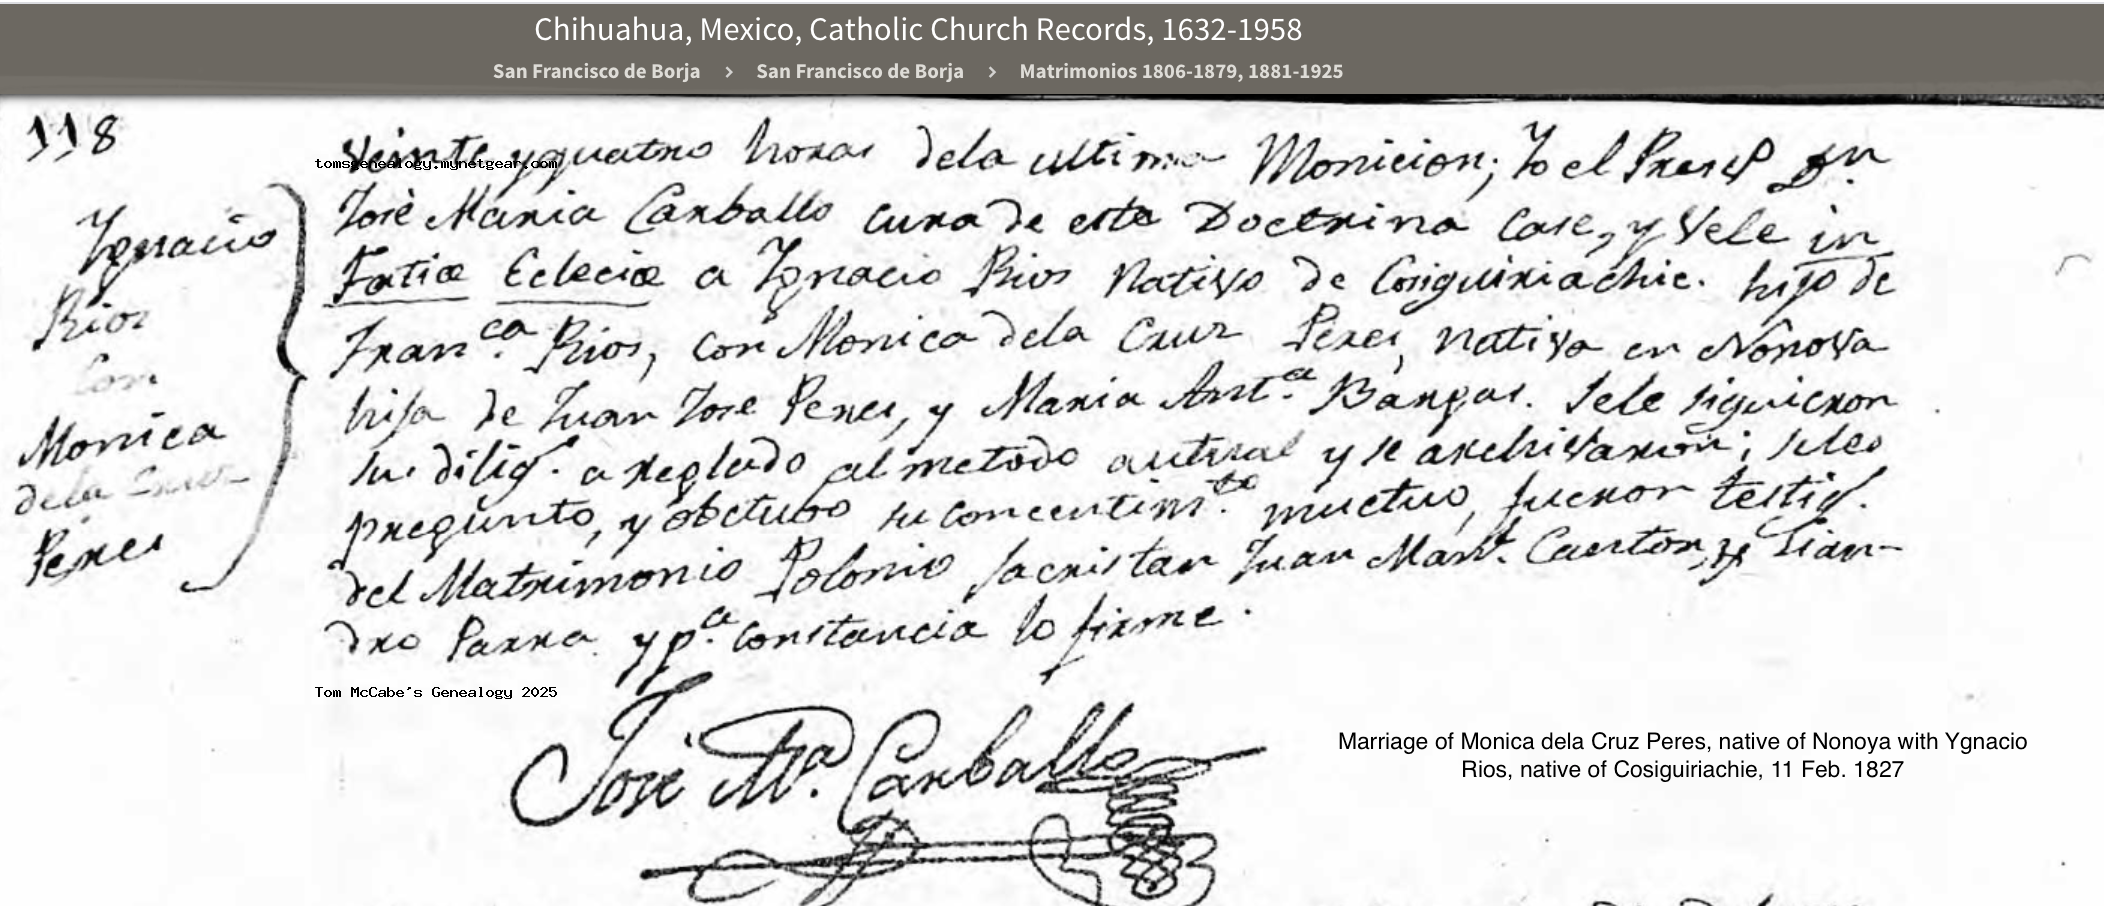 Chihuahua, Mexico, Catholic Church Records, 1632-1958
San Francisco de Borja > San Francisco de Borja > Matrimonios 1806-1879, 1881-1925
118
Ygnacio
Rios
con
Monica
dela Cruz
Peres
veinte y quatro horas dela ultima Monicion; Yo el Presvº Dn.
tomsgenealogy.mynetgear.com
José Maria Carballo cura de esta Doctrina Case, y Vele in
Fatiæ Ecleciæ a Ygnacio Rios Nativo de Cosiguiriachic. hijo de
Franca. Rios, con Monica dela Cruz Peres, nativa en Nonova
hija de Juan Jose Peres, y Maria Anta. Bargas. Sele siguieron
sus dilig.s areglado al metodo autual y se archivaron; seles
pregunto, y obctubo su concentimto. muctuo, fueron testigs.
del Matrimonio Polonio sacristan Juan Manl. Caerton, y Lian-
dro Parra y pa. constancia lo firme.
Tom McCabe's Genealogy 2025
José Ma. Carballo
Marriage of Monica dela Cruz Peres, native of Nonoya with Ygnacio
Rios, native of Cosiguiriachie, 11 Feb. 1827